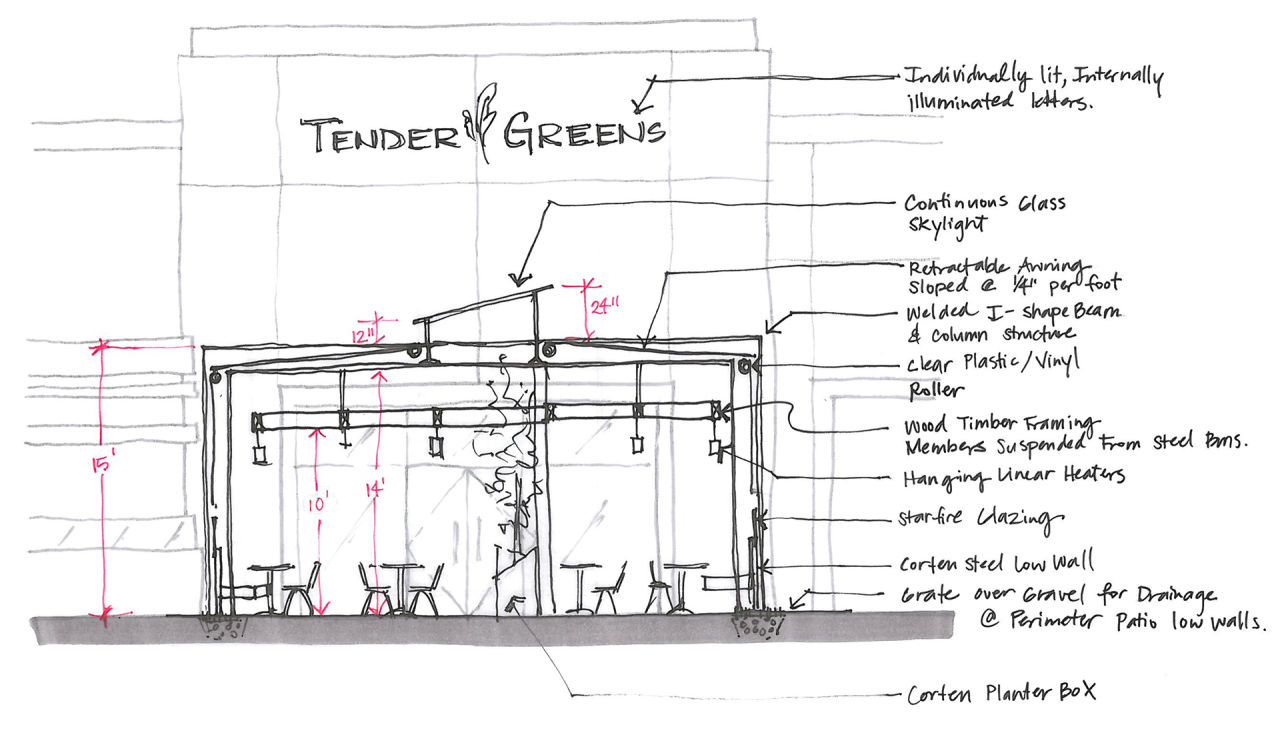 Individually lit, Internally
illuminated letters.
TENDER GREENS
Continuous Glass
Skylight
Retractable Awning
sloped @ 1/4" per foot
24"
12"
Welded I-shape Beam
& Column structure
Clear Plastic/Vinyl
Roller
Wood Timber Framing
Members Suspended From Steel Bms.
15'
10'
14'
Hanging Linear Heaters
Starfire Glazing
Corten Steel Low Wall
Grate over Gravel for Drainage
@ Perimeter Patio low walls.
Corten Planter Box